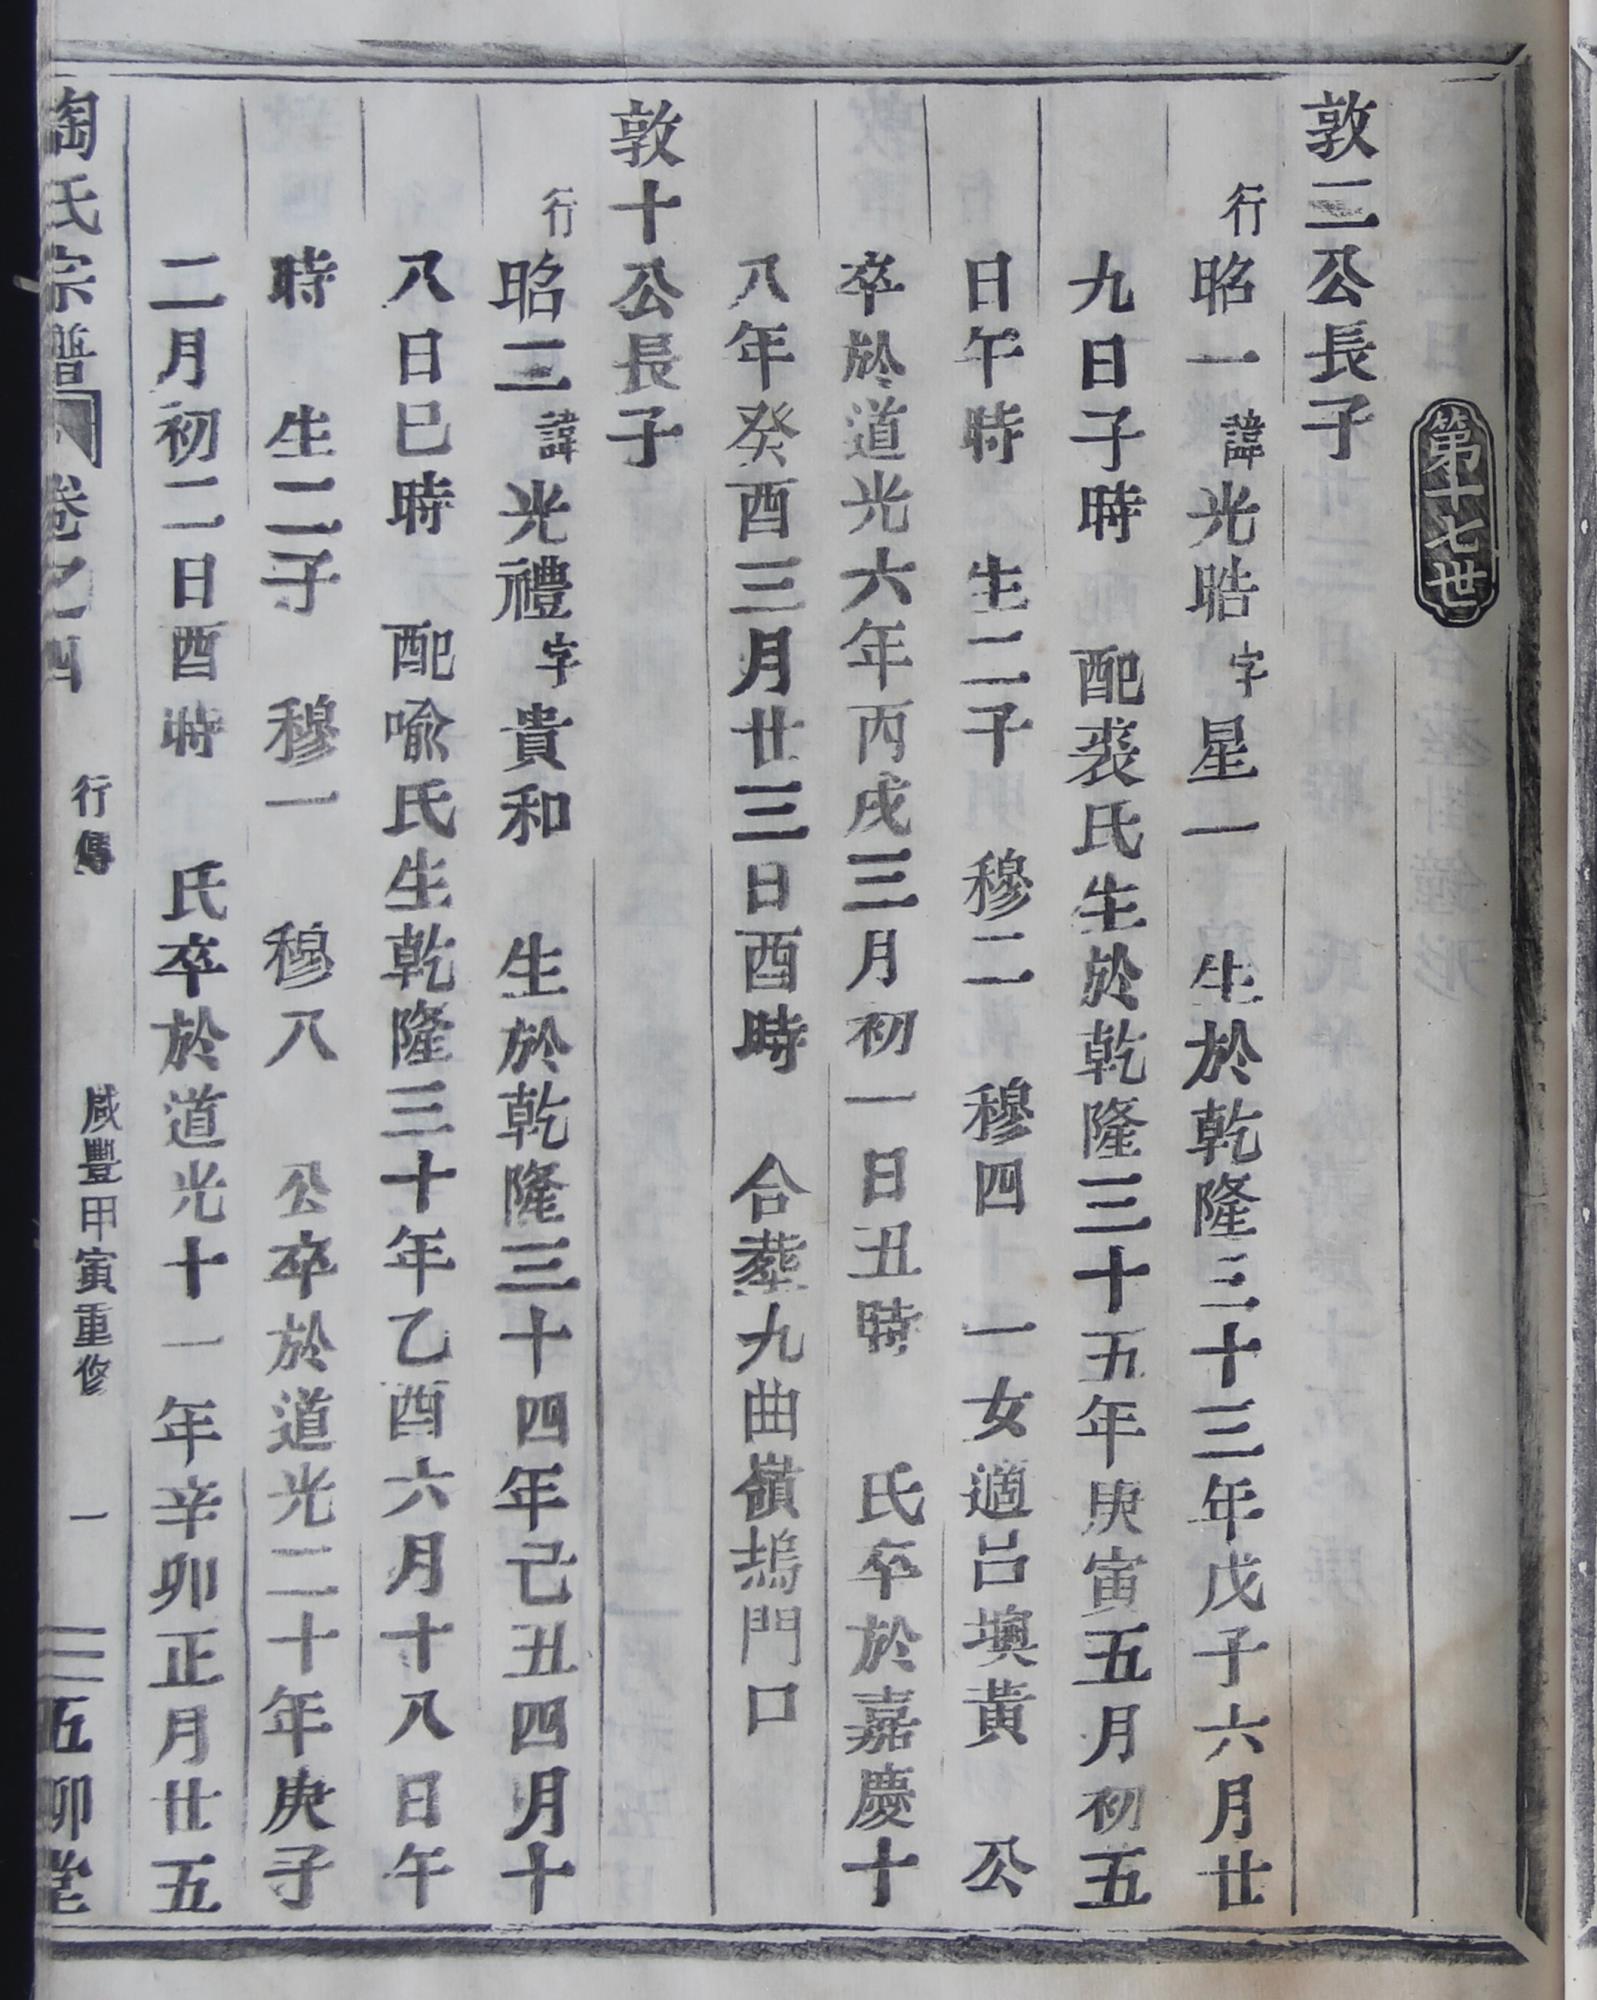 第十七世
敦三公長子
行昭一諱光晧字星一 生於乾隆三十三年戊子六月廿
九日子時 配裘氏生於乾隆三十五年庚寅五月初五
日午時 生二子 穆二 穆四 一女適呂墺黃 公
卒於道光六年丙戌三月初一日丑時 氏卒於嘉慶十
八年癸酉三月廿三日酉時 合塟九曲嶺塢門口
敦十公長子
行昭三諱光禮字貴和 生於乾隆三十四年己丑四月十
八日巳時 配喻氏生乾隆三十年乙酉六月十八日午
時 生二子 穆一 穆八 公卒於道光二十年庚子
二月初二日酉時 氏卒於道光十一年辛卯正月廿五
陶氏宗譜 卷之四 行傳 咸豐甲寅重修 一 五柳堂